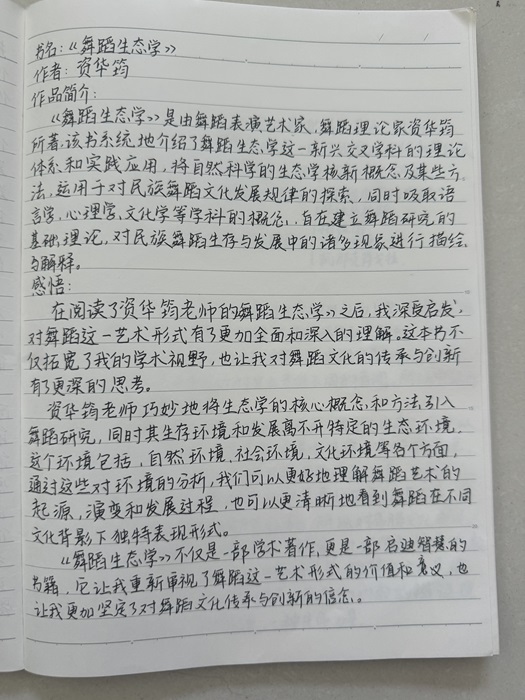 书名:《舞蹈生态学》
作者:资华筠
作品简介:
《舞蹈生态学》是由舞蹈表演艺术家,舞蹈理论家资华筠
所著,该书系统地介绍了舞蹈生态学这一新兴交叉学科的理论
体系和实践应用,将自然科学的生态学核新概念及某些方
法,运用于对民族舞蹈文化发展规律的探索,同时吸取语
言学,心理学,文化学等学科的概念,自在建立舞蹈研究的
基础理论,对民族舞蹈生存与发展中的诸多现象进行描绘
与解释。
感悟:
在阅读了资华筠老师的舞蹈生态学》之后,我深受启发,
对舞蹈这一艺术形式有了更加全面和深入的理解。这本书不
仅拓宽了我的学术视野,也让我对舞蹈文化的传承与创新
有了更深的思考。
资华筠老师巧妙地将生态学的核心概念和方法引入
舞蹈研究,同时其生存环境和发展离不开特定的生态环境.
这个环境包括,自然环境、社会环境,文化环境等各个方面,
通过这些对环境的分析,我们可以更好地理解舞蹈艺术的
起源,演变和发展过程,也可以更清晰地看到舞蹈在不同
文化背景下独特表现形式。
《舞蹈生态学》不仅是一部学术著作,更是一部启迪智慧的
书籍,它让我重新审视了舞蹈这一艺术形式的价值和意义,也
让我更加坚定了对舞蹈文化传承与创新的信念。